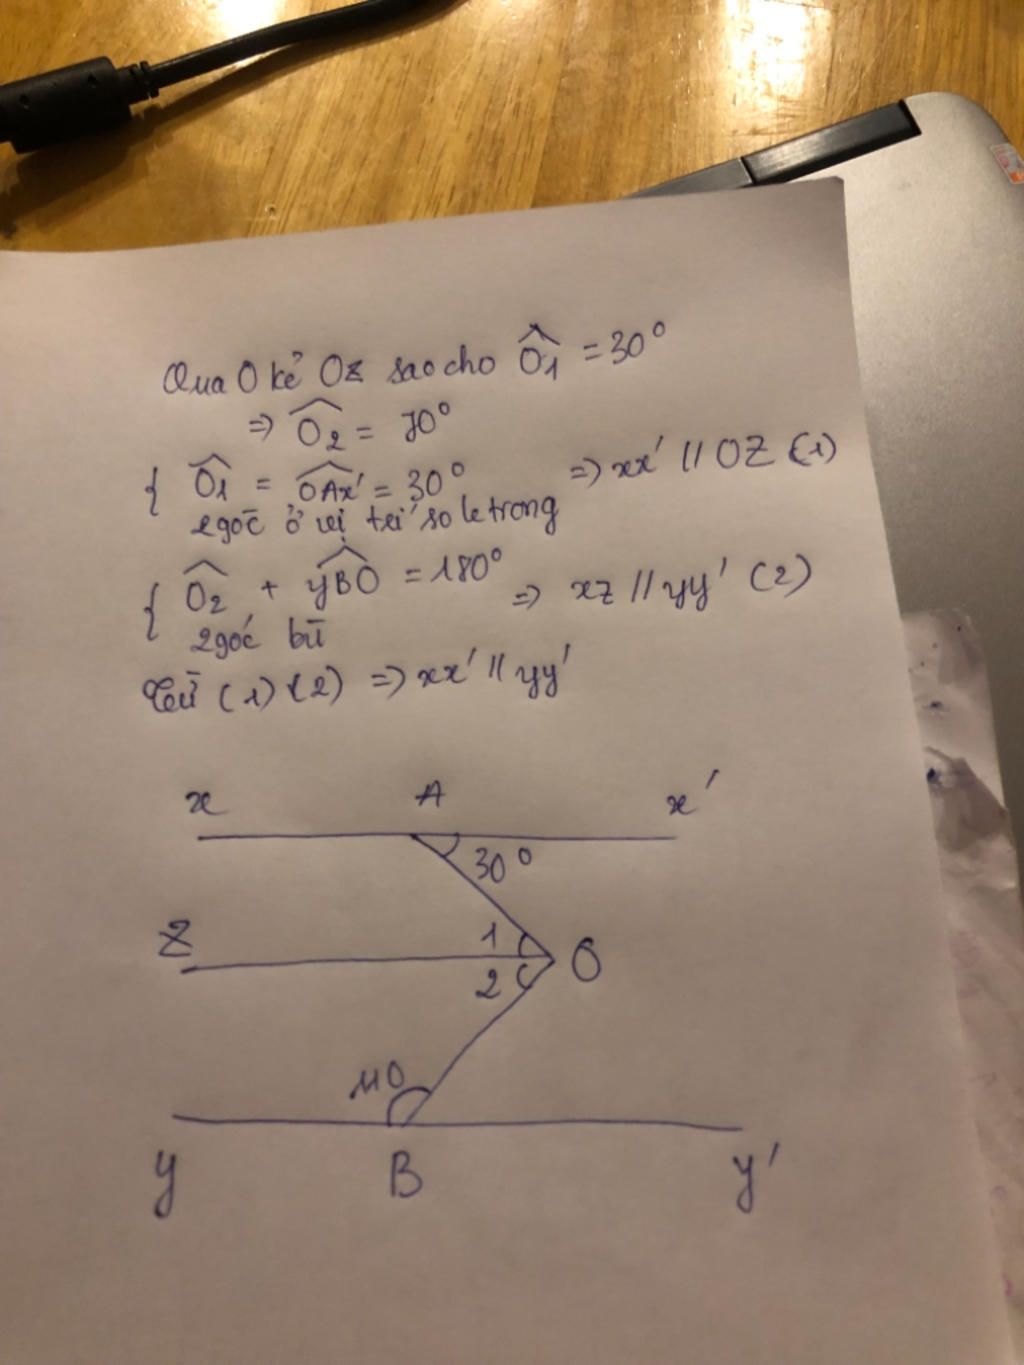 Qua O kẻ Oz sao cho Ô1 = 30°
=> Ô2 = 70°
{ Ô1 = OAx' = 30° => xx' // OZ (1)
2 góc ở vị trí so le trong
{ Ô2 + yBO = 180° => xz // yy' (2)
2 góc bù
Từ (1) (2) => xx' // yy'
x A x'
30°
Z 1 O
2
110
y B y'